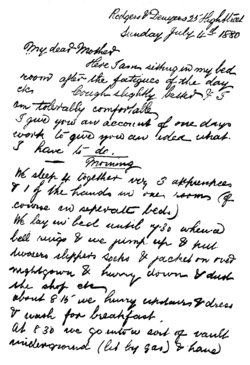 Rodgers & Denyers 25 High Street
Sunday July 4th 1880
My dear Mother
Here I am sitting in my bed
room after the fatigues of the day
etc Cough slightly better & I
am tolerably comfortable
I give you an account of one days
work to give you an idea what
I have to do.
Morning
We sleep 4 together viz 3 apprentices
& 1 of the hands in one room (of
course in seperate beds)
We lay in bed until 7/30 when a
bell rings & we jump up & put
trousers slippers socks & jacket on over
nightgown & hurry down & dust
the shop etc
about 8.15 we hurry upstairs & dress
& wash for breakfast.
At 8.30 we go into a sort of vault
underground (lit by gas) & have